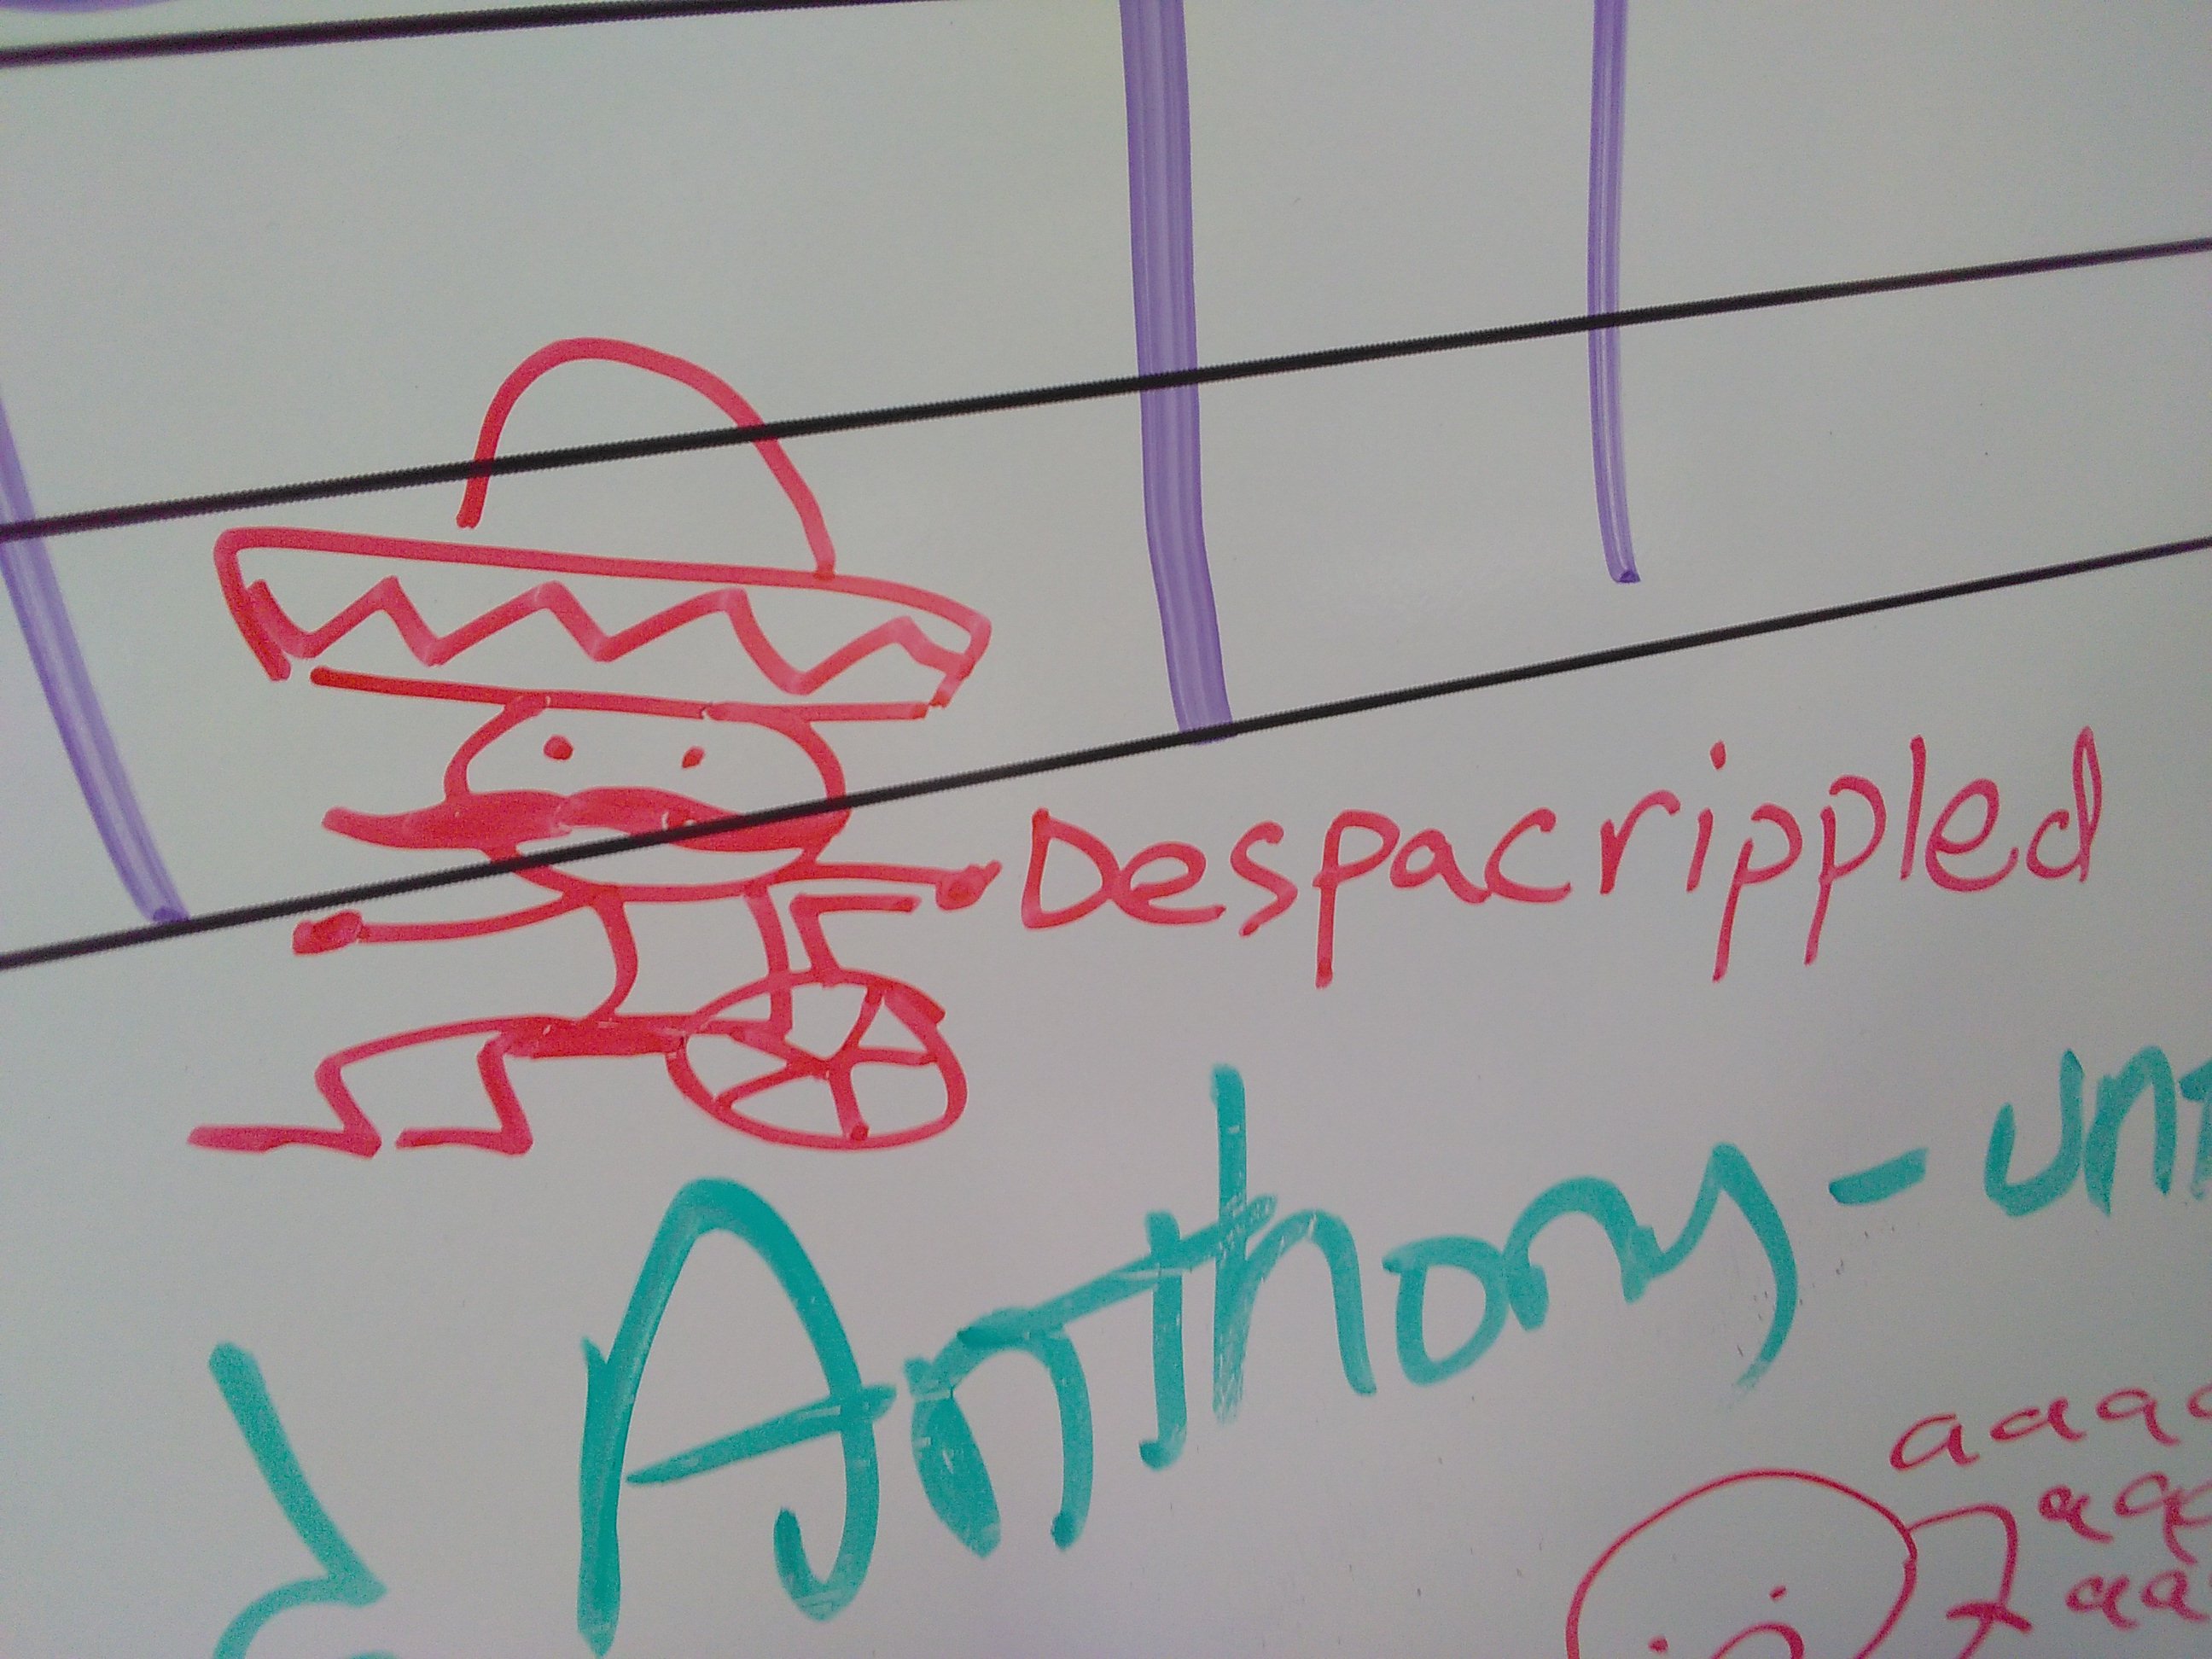 Despacrippled
Anthony -
aaa
aa
aa